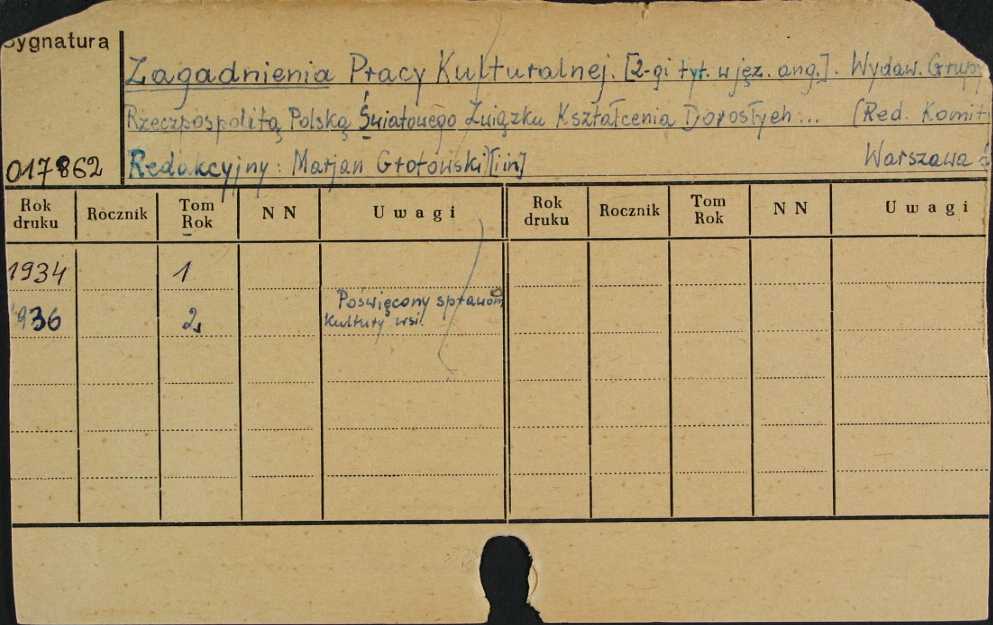 Sygnatura
Zagadnienia Pracy Kulturalnej. [2-gi tyt. w jęz. ang.]. Wydaw. Grupy
Rzeczpospolitą Polską Światowego Związku Kształcenia Dorosłych... (Red. Komit
017862 Redakcyjny: Marjan Grotowski [i in] Warszawa
Rok druku Rocznik Tom Rok N N Uwagi Rok druku Rocznik Tom Rok N N Uwagi
1934 1
1936 2 Poświęcony sprawom
Kultury wsi.